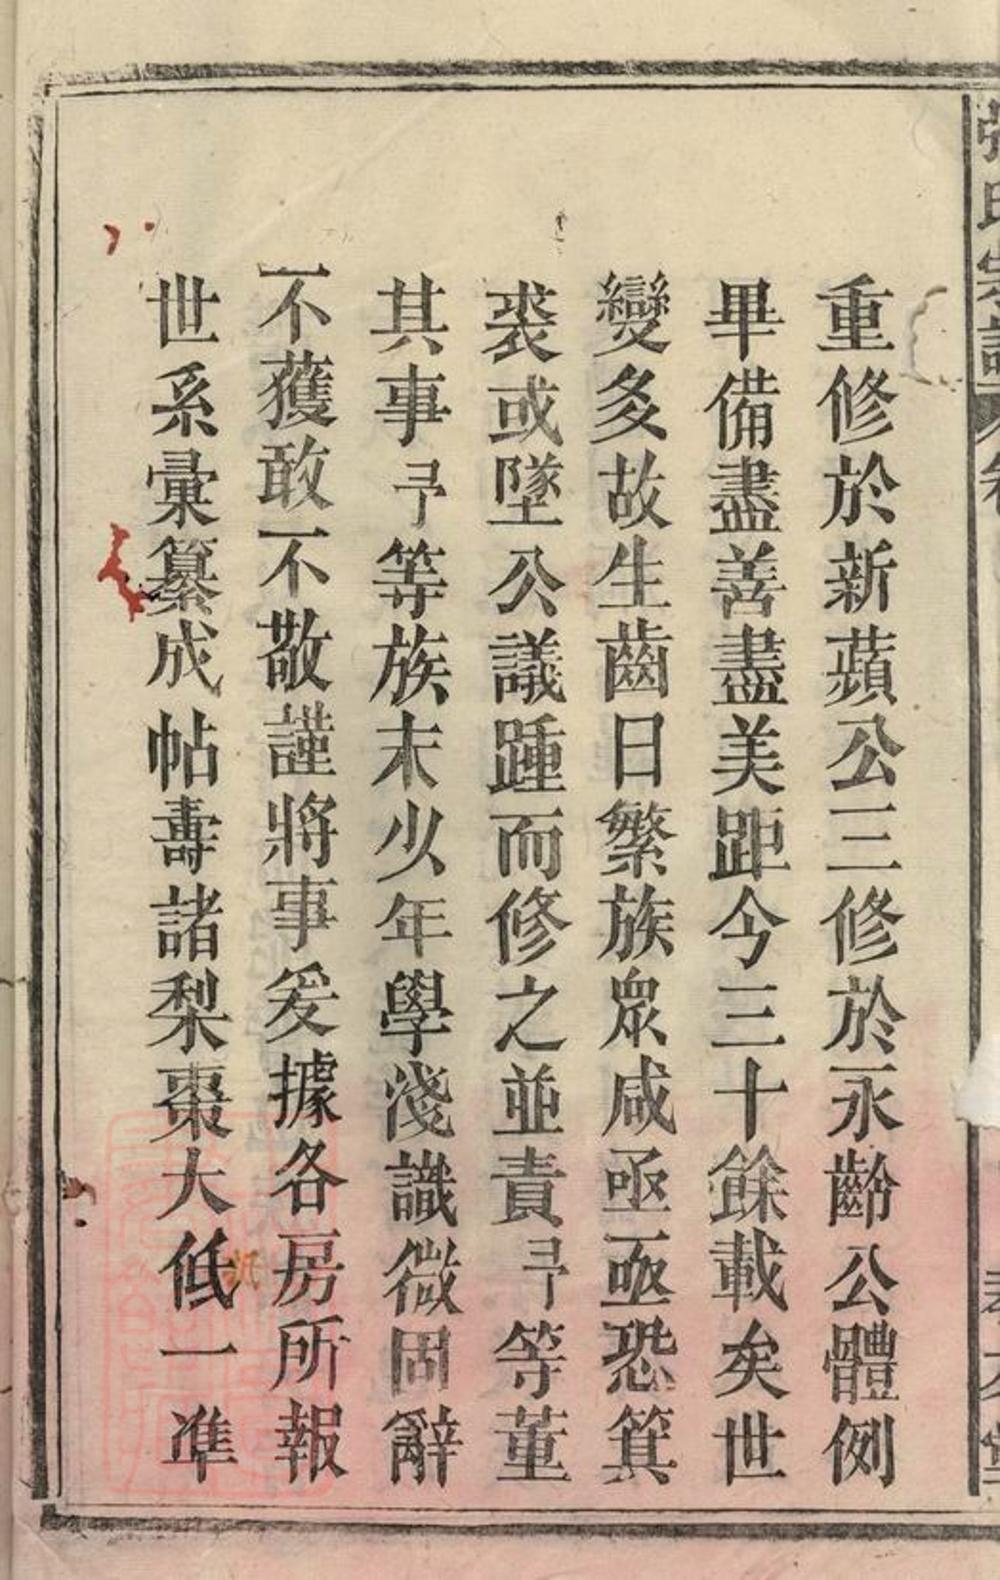 張氏宗譜 卷
重修於新蘋公三修於永齡公體例
畢備盡善盡美距今三十餘載矣世
變多故生齒日繁族眾咸亟亟恐箕
裘或墜公議踵而修之並責予等董
其事予等族末少年學淺識微固辭
不獲敢不敬謹將事爰據各房所報
世系彙纂成帖壽諸梨棗大低一準